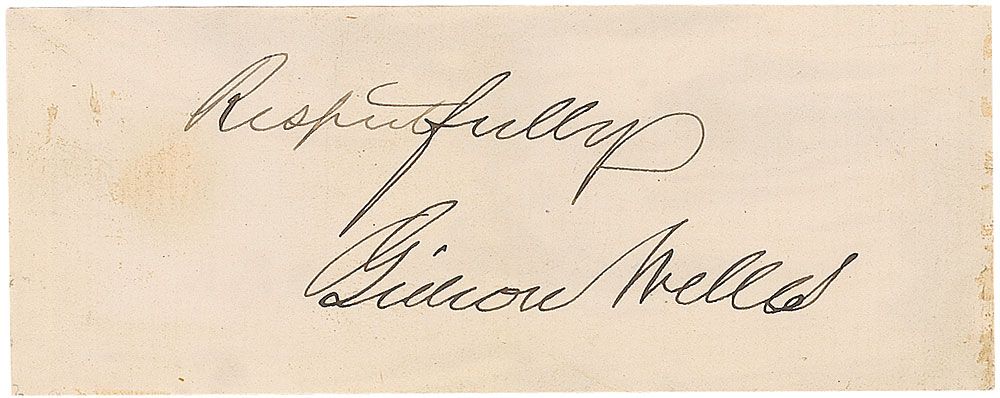 Respectfully
Gideon Welles